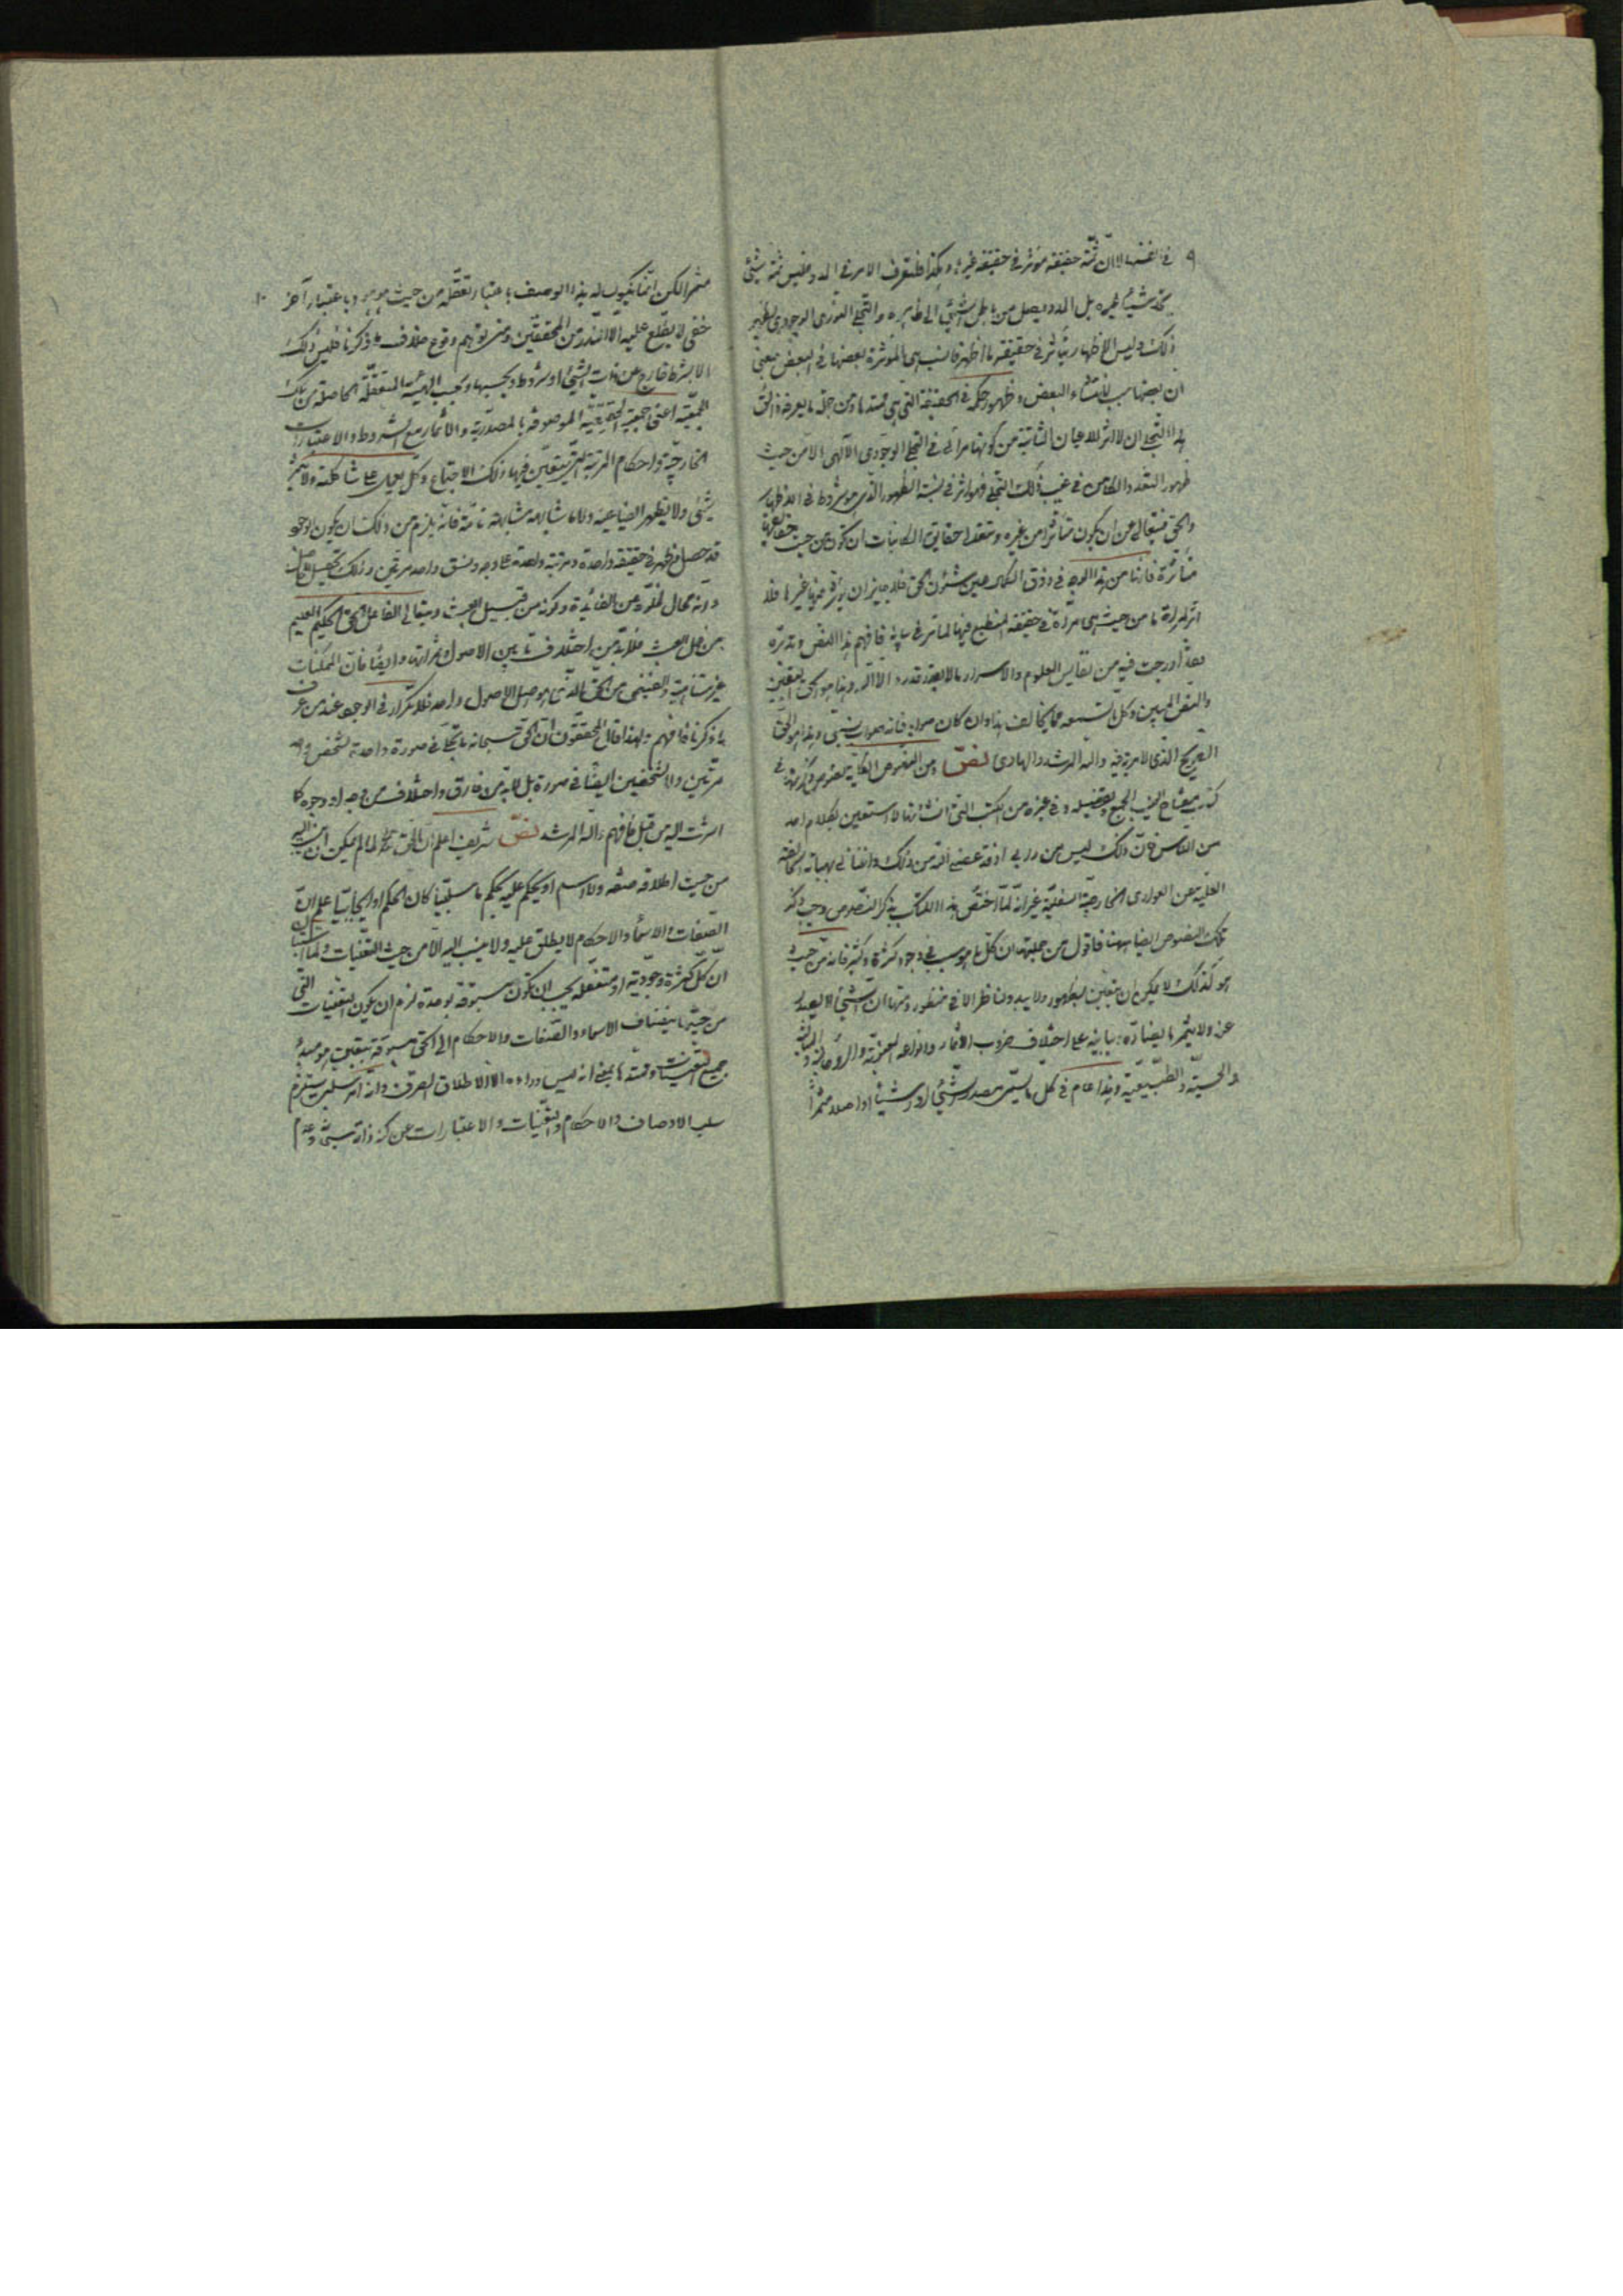 ٩ في نفسها لا انّ ثمّة حقيقة مؤثرة في حقيقة غيرها وهكذا فلتعرف الامر في المدد فليس ثمة شيئ
يمد شيئا غيره بل المدد يصل من باطن الشيئ الى ظاهره والتجلي النوري الوجودي يظهر
ذلك وليس الاظهار بتأثير في حقيقة ما اظهر فالنسب هي المؤثرة بعضها في البعض بمعنى
ان بعضها سبب لانتشاء البعض وظهور حكمه في الحقيقة التي هي محتدها ومن جملة ما يعرفه ذائق
هذا التجلي ان لا اثر للاعيان الثابتة من كونها مرائي في التجلي الوجودي الالهي الا من حيث
ظهور التعدد الكامن في غيب ذلك التجلي فهو اثر في نسبة الظهور الذي هو شرط في الاظهار
والحق يتعالى عن ان يكون متأثرا من غيره وتتعالى حقايق الكاينات ان تكون من حيث حقايقها
متأثرة فانها من هذا الوجه في ذوق الكمال عين شئون الحق فلا جايز ان يؤثر فيها غيرها فلا
اثر لمرآة ما من حيث هي مرآة في حقيقة المنطبع فيها لما مر في بيانه فافهم هذا النص وتدبره
فقد ادرجت فيه من نفايس العلوم والاسرار ما لا يقدر قدره الا الله وهذا هو الحق اليقين
والنص المبين وكل ما تسمعه مما يخالف هذا وان كان صوابا فانه صواب نسبي وهذا هو الحق
الصريح الذي لا مرية فيه والله المرشد والهادي نصّ ومن النصوص الكلية نصوص ذكرتها في
كتاب مفتاح غيب الجمع وتفصيله وفي غيره من الكتب التي انشأتها لا استعين بكلام احد
من الناس فان ذلك ليس من دأبي اذ قد عصمني الله من ذلك واغناني بهباته الخالصة
العلية عن العواري الخارجية السفلية غير انه لما اختص هذا الكتاب بذكر النصوص وجب ذكر
تلك النصوص ايضا ههنا فاقول من جملتها ان كل ما هو سبب في وجود كثرة وكثير فانه من حيث
هو كذلك لا يمكن ان يتعين بظهور ولا يبدو لناظر الا في منظور ومنها ان الشيئ لا يصدر
عنه ولا يثمر ما يضاده وما يباينه على اختلاف ضروب الاثمار وانواعه المعنوية والروحانية والمثالية
والحسية والطبيعية وهذا عام في كل ما يسمى مصدر الشيئ او اشيئا او اصلا مثمرا
١٠ مثمرا لكن انما يكون له هذا الوصف باعتبار تعقله من حيث هو هو وباعتبار آخر
خفي لا يطلع عليه الا الندر من المحققين ومتى توهم وقوع خلاف ما ذكرنا فليس ذلك
الا بشرط خارج عن ذات الشيئ او شروط وبحسبها وبحسب الهيئة المتعقلة الحاصلة من تلك
الجمعية اعني جمعية الحقيقة الموصوفة بالمصدرية والاثمار مع الشروط والاعتبارات
الخارجة واحكام المرتبة التي يتعين فيها ذلك الاجتماع وكل يعمل على شاكلته ولا يثمر
شيئ ولا يظهر ايضا عينه ولا ما شابهه مشابهة تامة فانه يلزم من ذلك ان يكون الوجود
قد حصل وظهر في حقيقة واحدة ومرتبة واحدة على وجه ونسق واحد مرتين وذلك تحصيل الحاصل
وانه محال لخلوه عن الفائدة وكونه من قبيل العبث ويتعالى الفاعل الحق الحكيم العليم
من فعل العبث فلا بد من اختلاف ما بين الاصول وثمراتها وايضا فان الممكنات
غير متناهية والفيض من الحق الذي هو اصل الاصول واحد فلا تكرار في الوجود عند من عرف
ما ذكرنا فافهم ولهذا قال المحققون ان الحق سبحانه ما تجلى في صورة واحدة لشخص واحد
مرتين ولا لشخصين ايضا في صورة بل لا بد من فارق واختلاف من وجه او وجوه كما
اشرت اليه من قبل فافهم والله المرشد نصّ شريف اعلم ان الحق تعالى لما لم يكن ان ينسب اليه
من حيث اطلاقه صفة ولا اسم او يحكم عليه بحكم ما سلبيا كان الحكم او ايجابيا علم ان
الصفات والاسماء والاحكام لا يطلق عليه ولا ينسب اليه الا من حيث التعينات ولما استبان
ان كل كثرة وجودية او متعقلة يجب ان تكون مسبوقة بوحدة لزم ان يكون التعينات التي
من حيثها ينضاف الاسماء والصفات والاحكام الى الحق مسبوقة بتعين هو مبدأ
جميع التعينات ومحتدها بمعنى انه ليس وراءه الا الاطلاق الصرف وانه امر سلبي يستلزم
سلب الاوصاف والاحكام والتعينات والاعتبارات عن كنه ذاته سبحانه وعدم